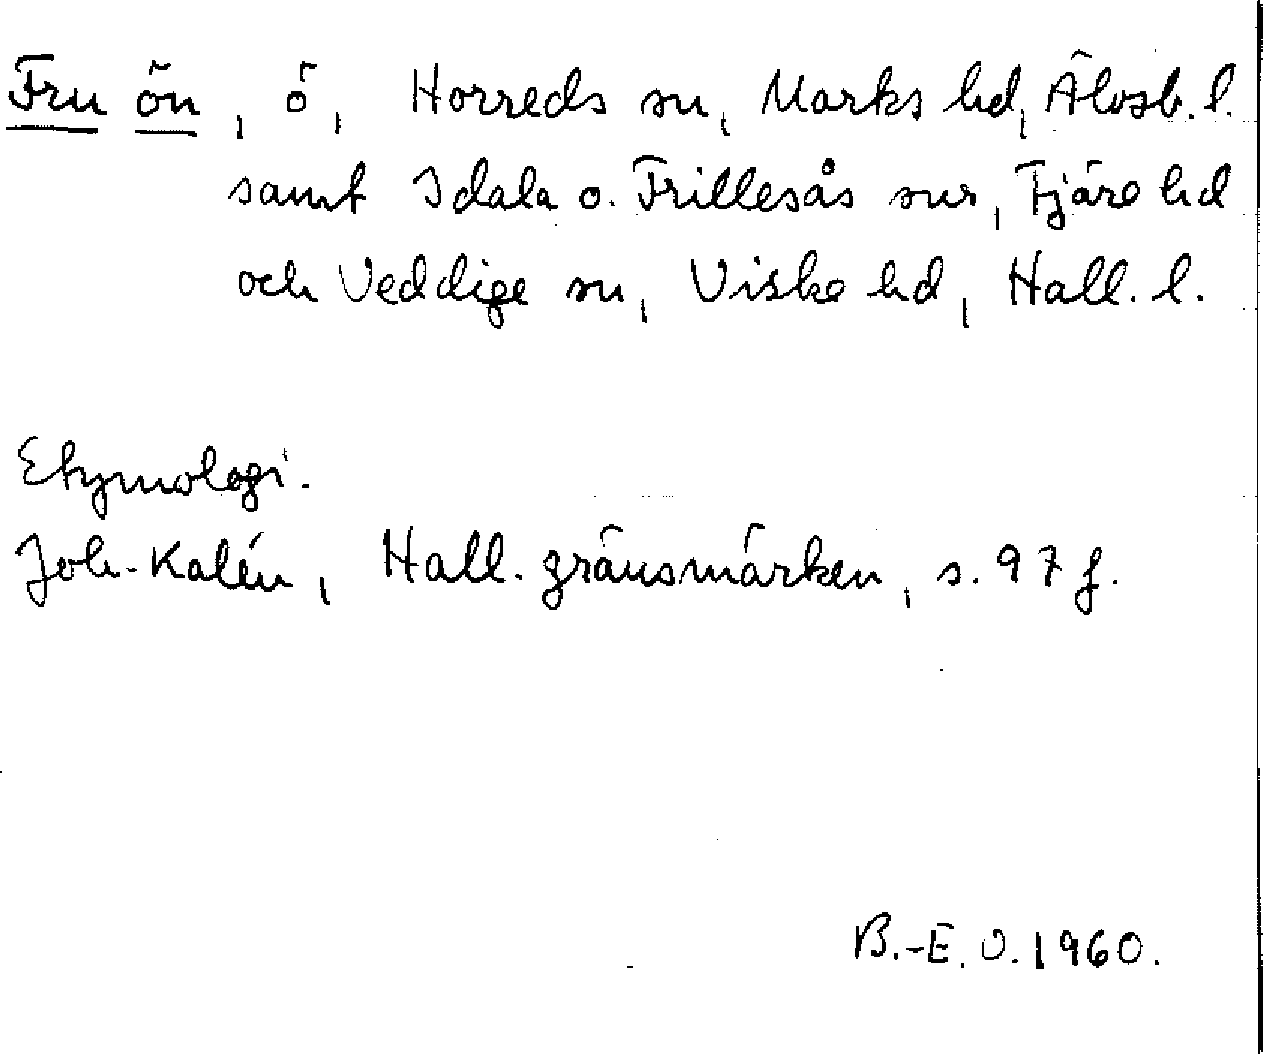 Fru ön, ö, Horreds sn, Marks hd, Älvsb. l.
samt Idala o. Frillesås snr, Fjäre hd
och Veddige sn, Viske hd, Hall. l.
Etymologi.
Joh. Kalén, Hall. gränsmärken, s. 97 f.
B.-E. O. 1960.